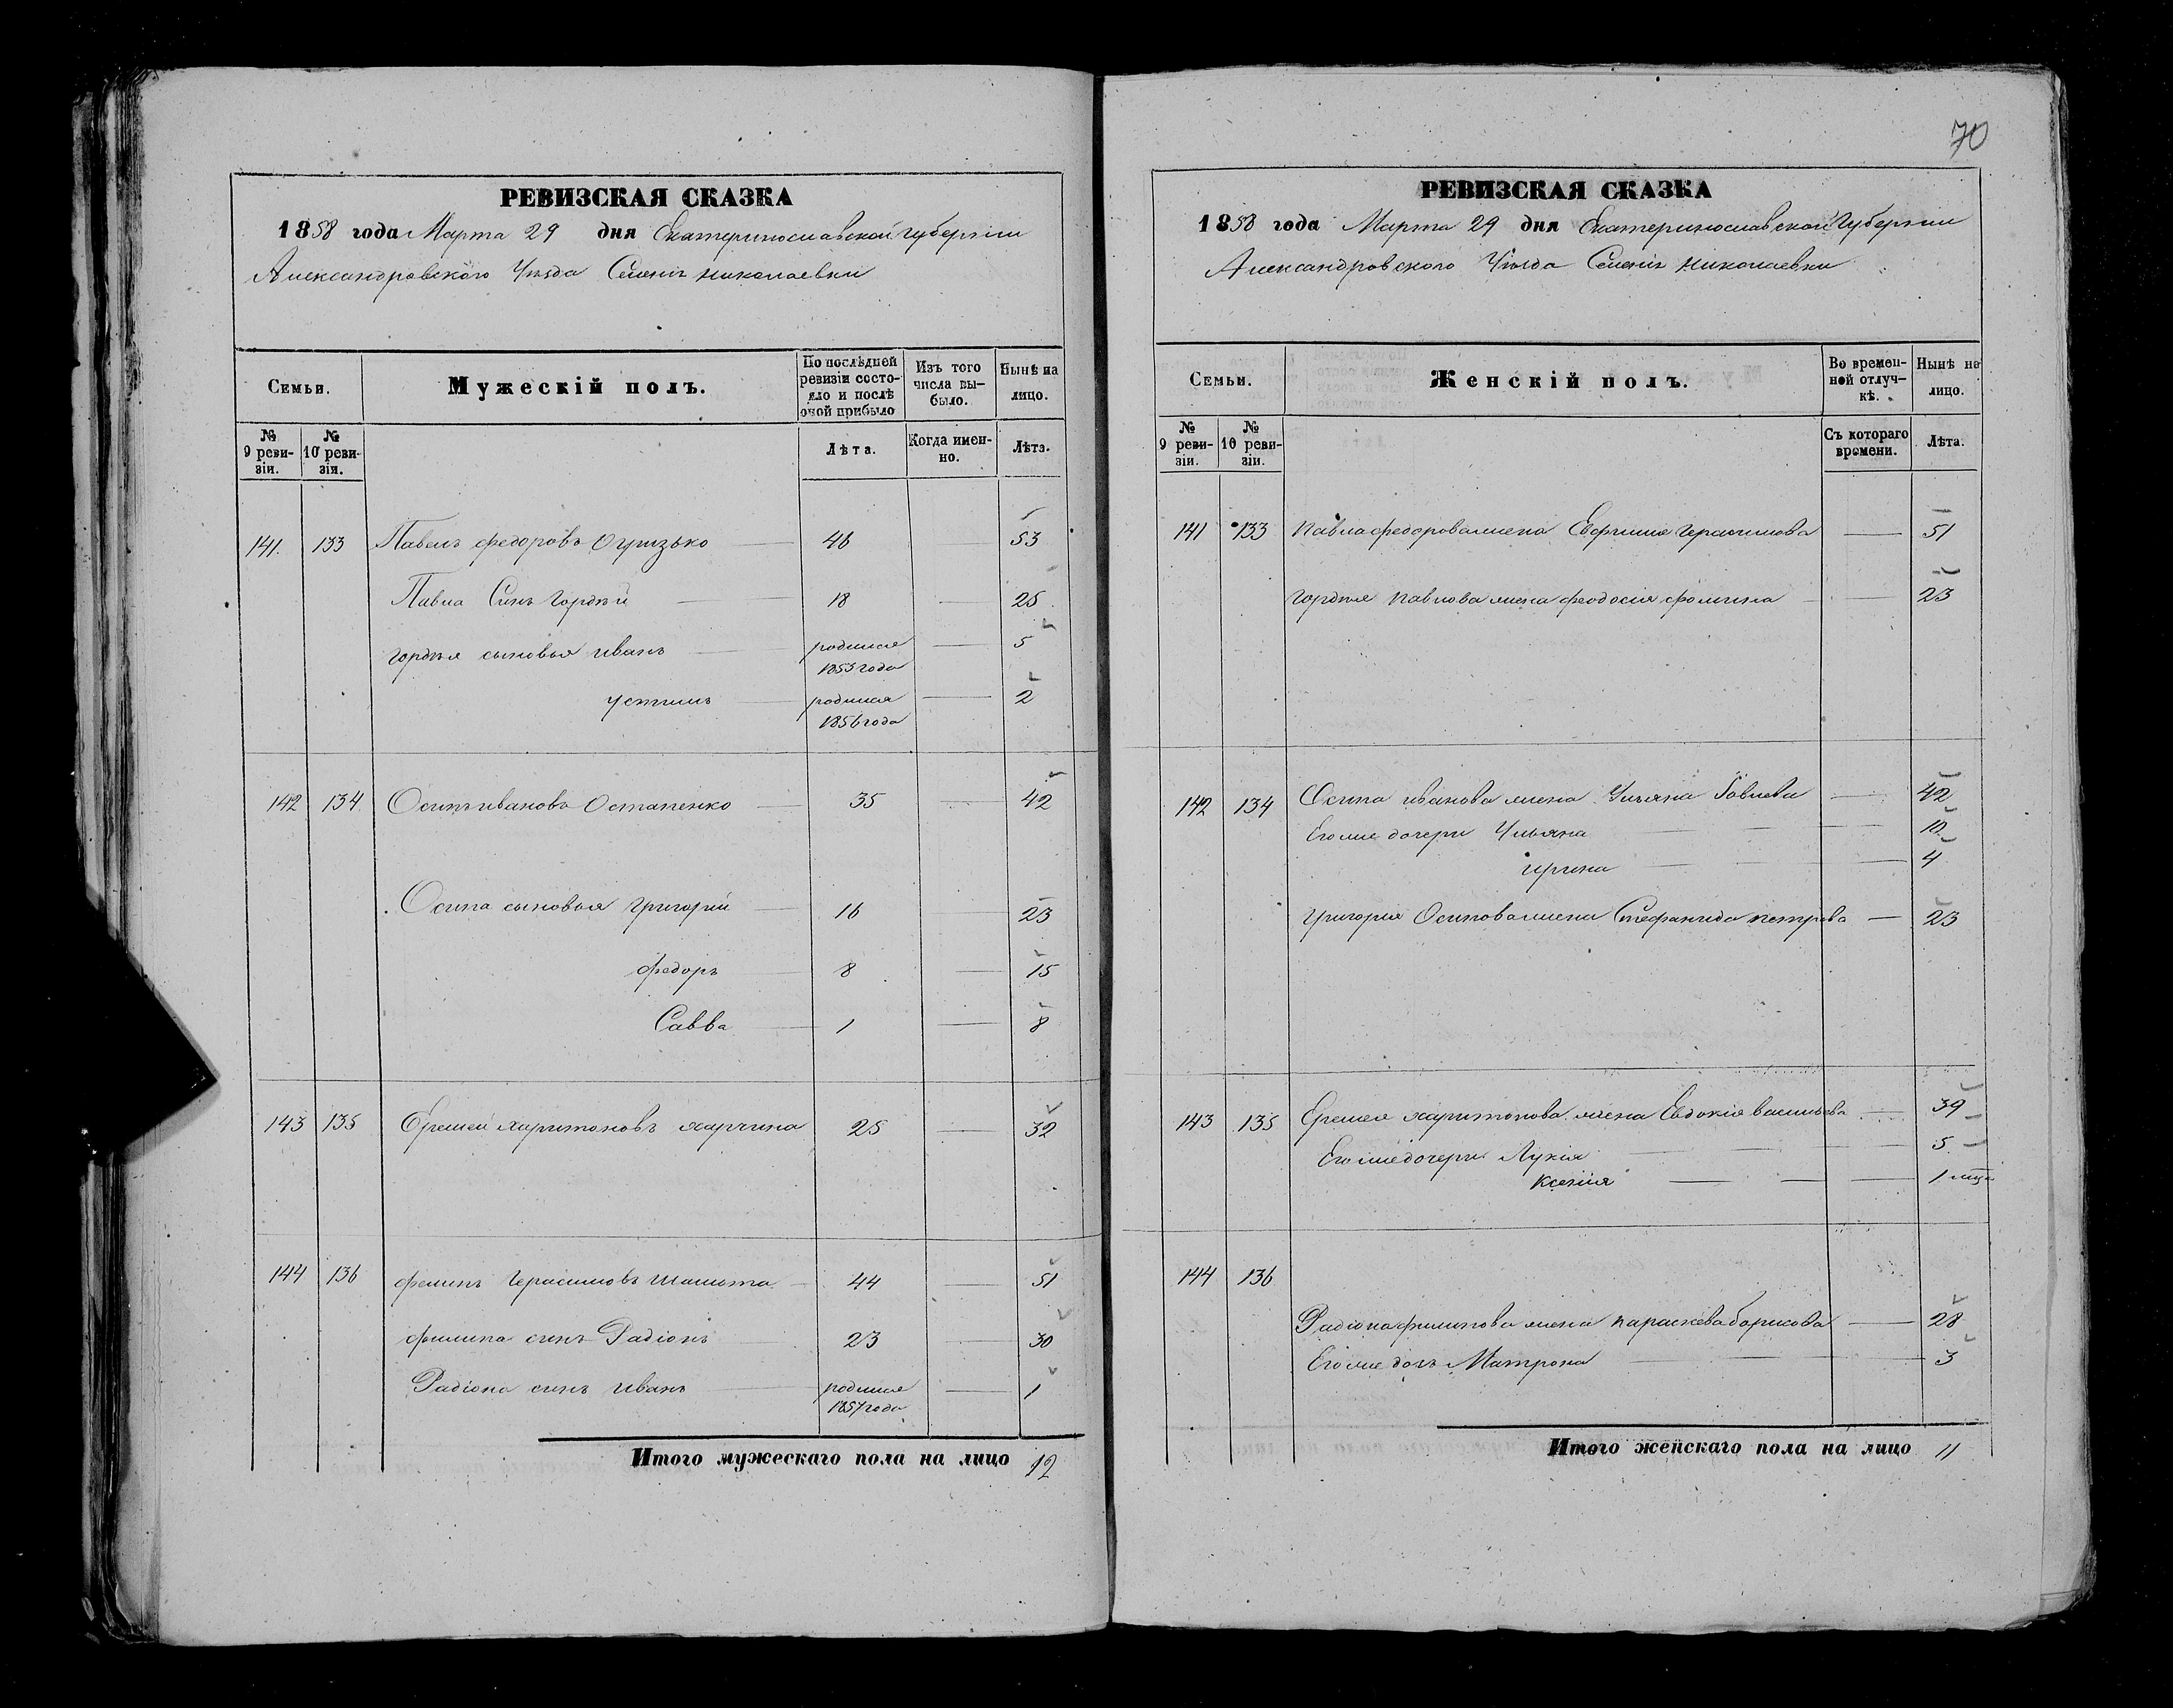 РЕВИЗСКАЯ СКАЗКА
1858 года Марта 29 дня Екатеринославской губерніи
Александровского Уѣзда Селенія николаевки
Семьи.
Мужескій полъ.
По послѣдней ревизіи состояло и послѣ оной прибыло
Изъ того числа вы-было.
Нынѣ на лицо.
№ 9 реви-зіи.
№ 10 реви-зіи.
Лѣта.
Когда имен-но.
Лѣта.
141. 133 Павелъ федоровъ Огризько 46 53
Павла Синъ Гордѣй 18 25
гордѣя сыновья иванъ родился 1853 года 5
устинъ родился 1856 года 2
142 134. Осипъ ивановъ Остапенко 35 42
Осипа сыновья григорій 16 23
федоръ 8 15
Савва 1 8
143 135 Еремей харитоновъ харчина 25 32
144 136 Герасимовъ 44 51
филипа синъ Радіонъ 23 30
Радіона синъ иванъ родился 1857 года 1
Итого мужескаго пола на лицо 12
70
РЕВИЗСКАЯ СКАЗКА
1858 года Марта 29 дня Екатеринославской Губерніи
Александровского Уѣзда Селенія николаевки
Семьи.
Женскій полъ.
Во времен-ной отлуч-кѣ.
Нынѣ на лицо.
№ 9 реви-зіи.
№ 10 реви-зіи.
Съ котораго времени.
Лѣта.
141 133 павла федорова жена Герасимова 51
гордѣя павлова жена феодосія фомина 23
142 134 Осипа иванова жена Ульяна 42
Его же дочери Ульяна 10
ирина 4
григорія Осипова жена Стефанида петрова 23
143 135 Еремея харитонова жена Евдокія васильева 39
Его же дочери Лукія 5
Ксенія 1 мца
144 136
Радіона филипова жена параскева борисова 28
Его же дочъ Матрона 3
Итого женскаго пола на лицо 11